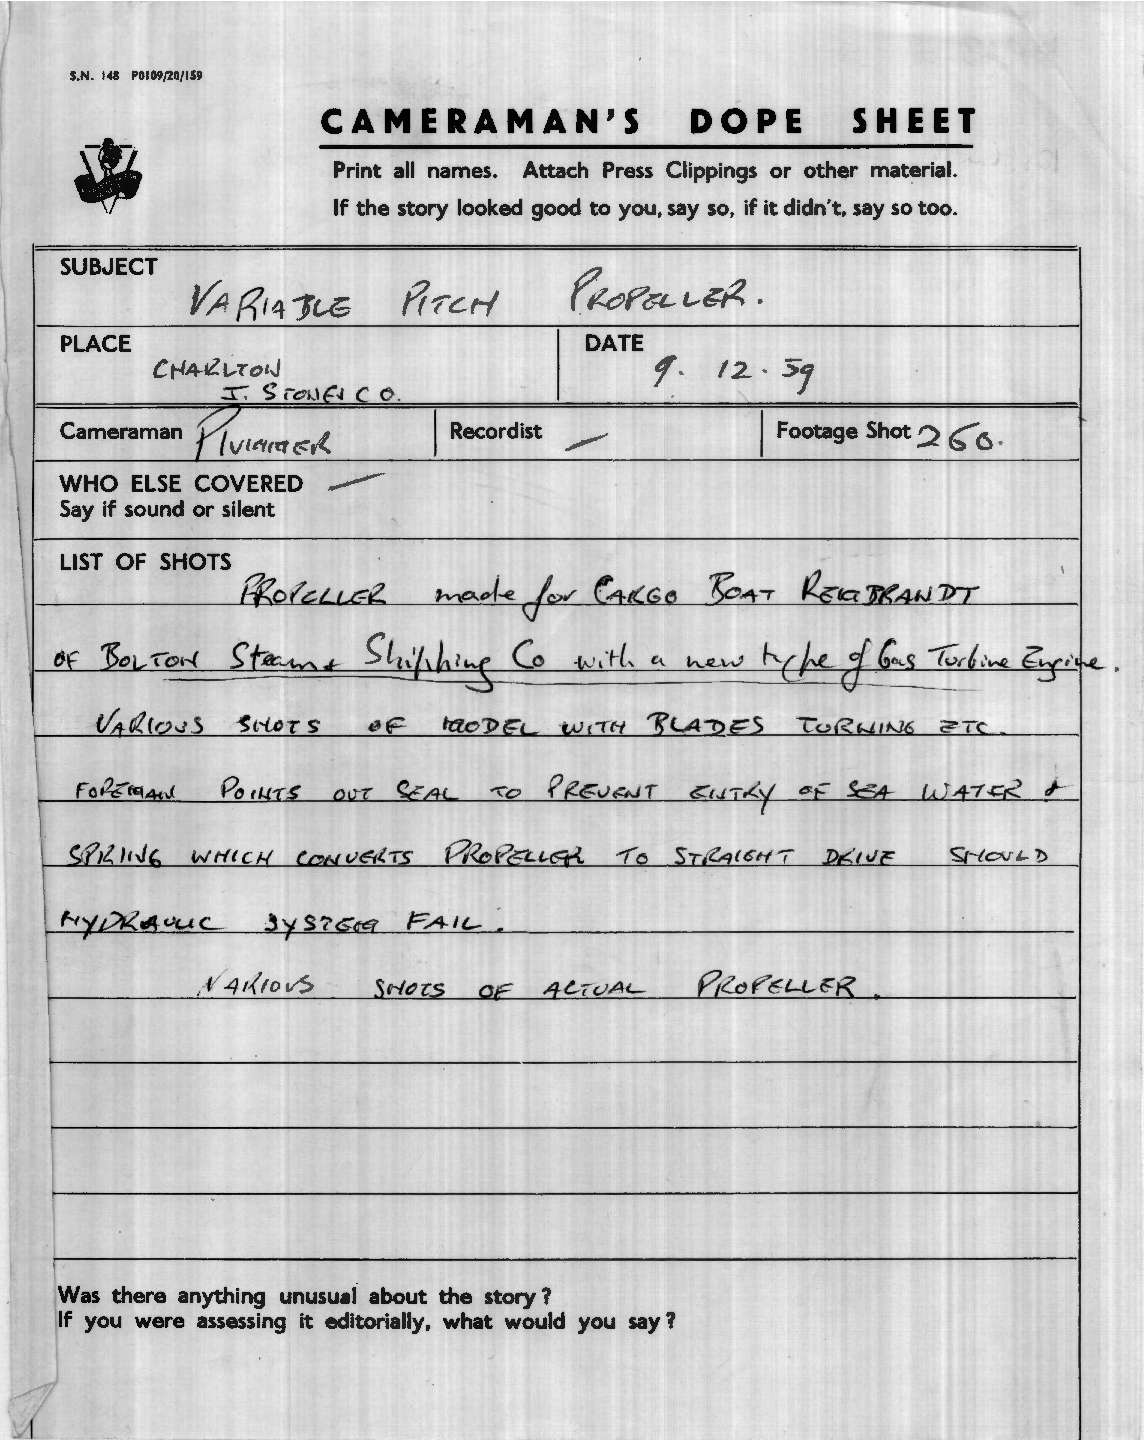 S.N. 148 P0109/20/159
CAMERAMAN'S DOPE SHEET
Print all names. Attach Press Clippings or other material.
If the story looked good to you, say so, if it didn't, say so too.
SUBJECT
VARIABLE PITCH PROPELLER.
PLACE
CHARLTON
J. STONES CO.
DATE
9. 12. 59
Cameraman PLUMMER
Recordist —
Footage Shot 260.
WHO ELSE COVERED —
Say if sound or silent
LIST OF SHOTS
PROPELLER made for CARGO BOAT REMBRANDT
OF BOLTON Steam & Shipping Co with a new type of Gas Turbine Engine.
VARIOUS SHOTS OF MODEL WITH BLADES TURNING ETC.
FOREMAN POINTS OUT SEAL TO PREVENT ENTRY OF SEA WATER &
SPRING WHICH CONVERTS PROPELLER TO STRAIGHT DRIVE SHOULD
HYDRAULIC SYSTEM FAIL.
VARIOUS SHOTS OF ACTUAL PROPELLER.
Was there anything unusual about the story?
If you were assessing it editorially, what would you say?